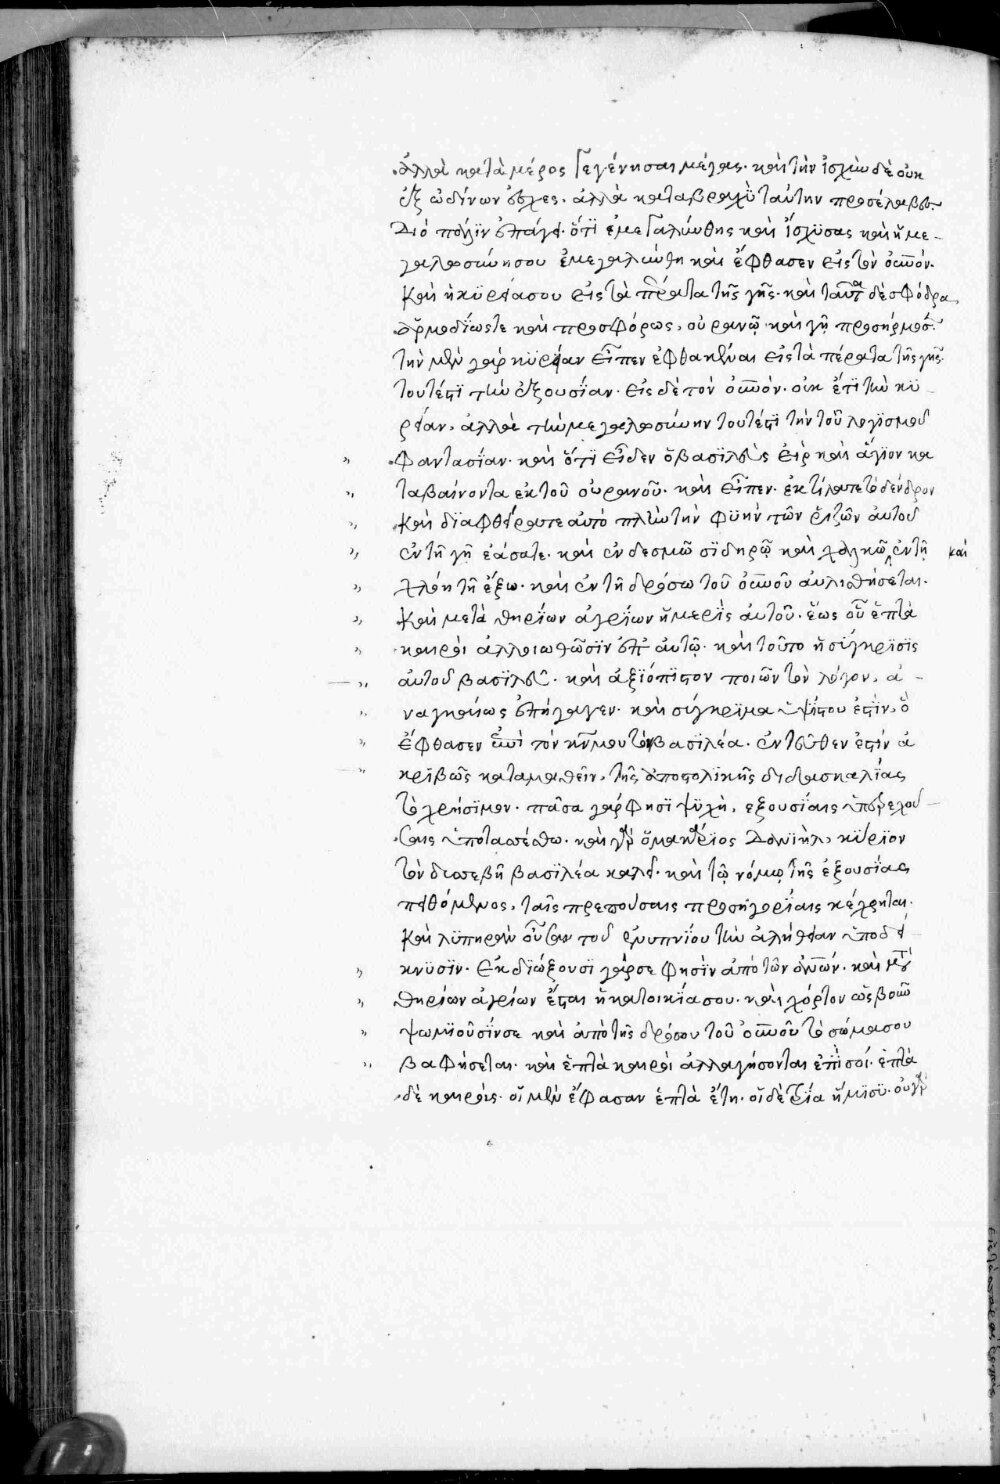 ἀλλὰ κατὰ μέρος γεγέννησαι μέγας· καὶ τὴν ἰσχὺν δὲ οὐκ
ἐξ ὠδίνων ἔσχες· ἀλλὰ καταβραχῢ ταύτην προσέλαβες·
Διὸ πάλϊν ἐπάγει· ὅτϊ ἐμεγαλύνθης καὶ ἴσχϋσας καὶ ἡ με-
γαλοσύνη σου ἐμεγαλύνθη καὶ ἔφθασεν εἰς τὸν οὐνόν·
καὶ ἡ κϋρεία σου εἰς τὰ πέρατα τῆς γῆς· καὶ ταῦτα δὲ σφόδρα
ἁρμοδΐως τε καὶ προσφόρως, οὐρανῷ καὶ γῇ προσήρμοσε·
τὴν μὲν γὰρ κϋρείαν εἶπεν ἐφθακέναι εἰς τὰ πέρατα τῆς γῆς·
τουτέστι τὴν ἐξουσίαν· εἰς δὲ τὸν οὐνόν· οὐκ ἔτϊ τὴν κϋ-
ρείαν, ἀλλὰ τὴν μεγαλοσύνην τουτέστι τὴν τοῦ λογϊσμοῦ
φαντασΐαν· καὶ ὅτϊ εἶδεν ὁ βασϊλεὺς εἲρ καὶ ἅγϊον κα
ταβαίνοντα ἐκ τοῦ οὐρανοῦ· καὶ εἶπεν· ἐκτίλατε τὸ δένδρον
καὶ δϊαφθείρατε αὐτὸ πλὴν τὴν φϋὴν τῶν ῥιζῶν αὐτοῦ
ἐν τῇ γῇ ἐάσατε· καὶ ἐν δεσμῷ σϊδηρῷ καὶ χαλκῷ ἐν τῇ καὶ
χλόῃ τῇ ἔξω· καὶ ἐν τῇ δρόσω τοῦ οὐνοῦ αὐλισθήσεται·
καὶ μετὰ θηρΐων ἀγρΐων ἡ μερὶς αὐτοῦ· ἕως οὗ ἑπτὰ
καιροὶ ἀλλοιωθῶσϊν ἐπ' αὐτῷ· καὶ τοῦτο ἡ σύγκρϊσϊς
αὐτοῦ βασϊλεῦ· καὶ ἀξϊόπϊστον ποιῶν τὸν λόγον, ἀ-
ναγκαίως ἐπήγαγεν· καὶ σύγκρϊμα ὑψίστου ἐστϊν, ὃ
ἔφθασεν ἐπὶ τὸν κν μου τὸν βασϊλέα· ἐντεῦθεν ἐστϊν ἀ
κρϊβῶς καταμαθεῖν, τῆς ἀποστολϊκῆς διδασκαλΐας
τὸ χρήσϊμον· πᾶσα γάρ φησϊ ψϋχὴ, ἐξουσΐαις ὑπερεχού-
σαις ὑποτασσέσθω· καὶ γὰρ ὁ μακάρϊος Δανϊὴλ, κϋρϊον
τὸν δυσσεβῆ βασϊλέα καλεῖ· καὶ τῷ νόμῳ τῆς ἐξουσίας
πειθόμενος, ταῖς πρεπούσαις προσηγορΐαις κέχρηται·
καὶ λϋπηρὰν οὖσαν τοῦ ἐνυπνΐου τὴν ἀλήθειαν ὑποδεί-
κνϋσϊν· ἐκδϊώξουσϊ γάρ σε φησϊν ἀπὸ τῶν ἀνῶν· καὶ μετὰ
θηρίων ἀγρίων ἔσται ἡ κατοικΐα σου· καὶ χόρτον ὡς βοῦν
ψωμϊοῦσΐν σε καὶ ἀπὸ τῆς δρόσου τοῦ οὐνοῦ τὸ σῶμα σου
βαφήσεται· καὶ ἑπτὰ καιροὶ ἀλλαγήσονται ἐπϊ σοί· ἑπτὰ
δὲ καιροὺς· οἱ μὲν ἔφασαν ἑπτὰ ἔτη· οἱ δὲ τρΐα ἥμϊσϋ· οὐ γὰρ